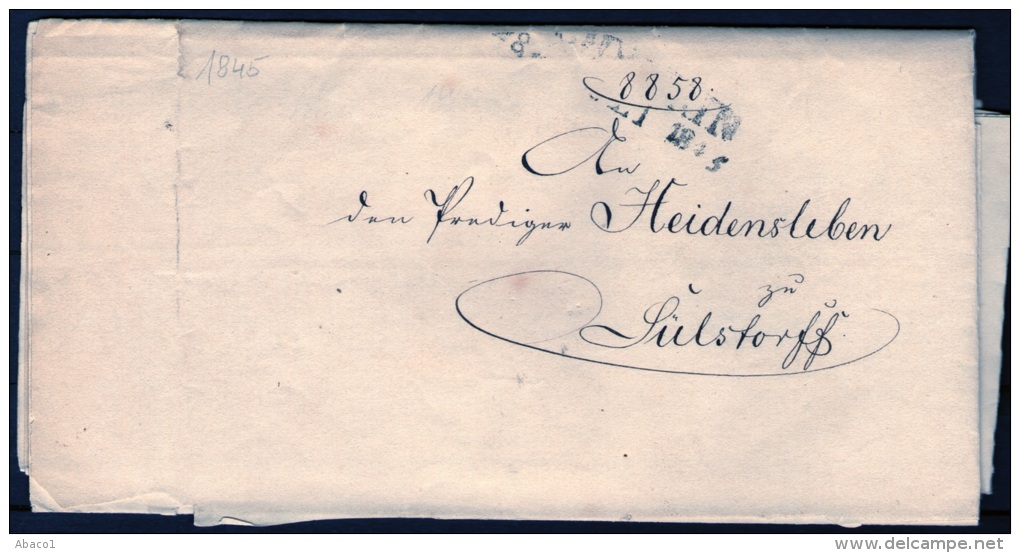 1845
8858.
1845
An
den Prediger Heidensleben
zu
Sülstorff.
Abaco1
delcampe.net